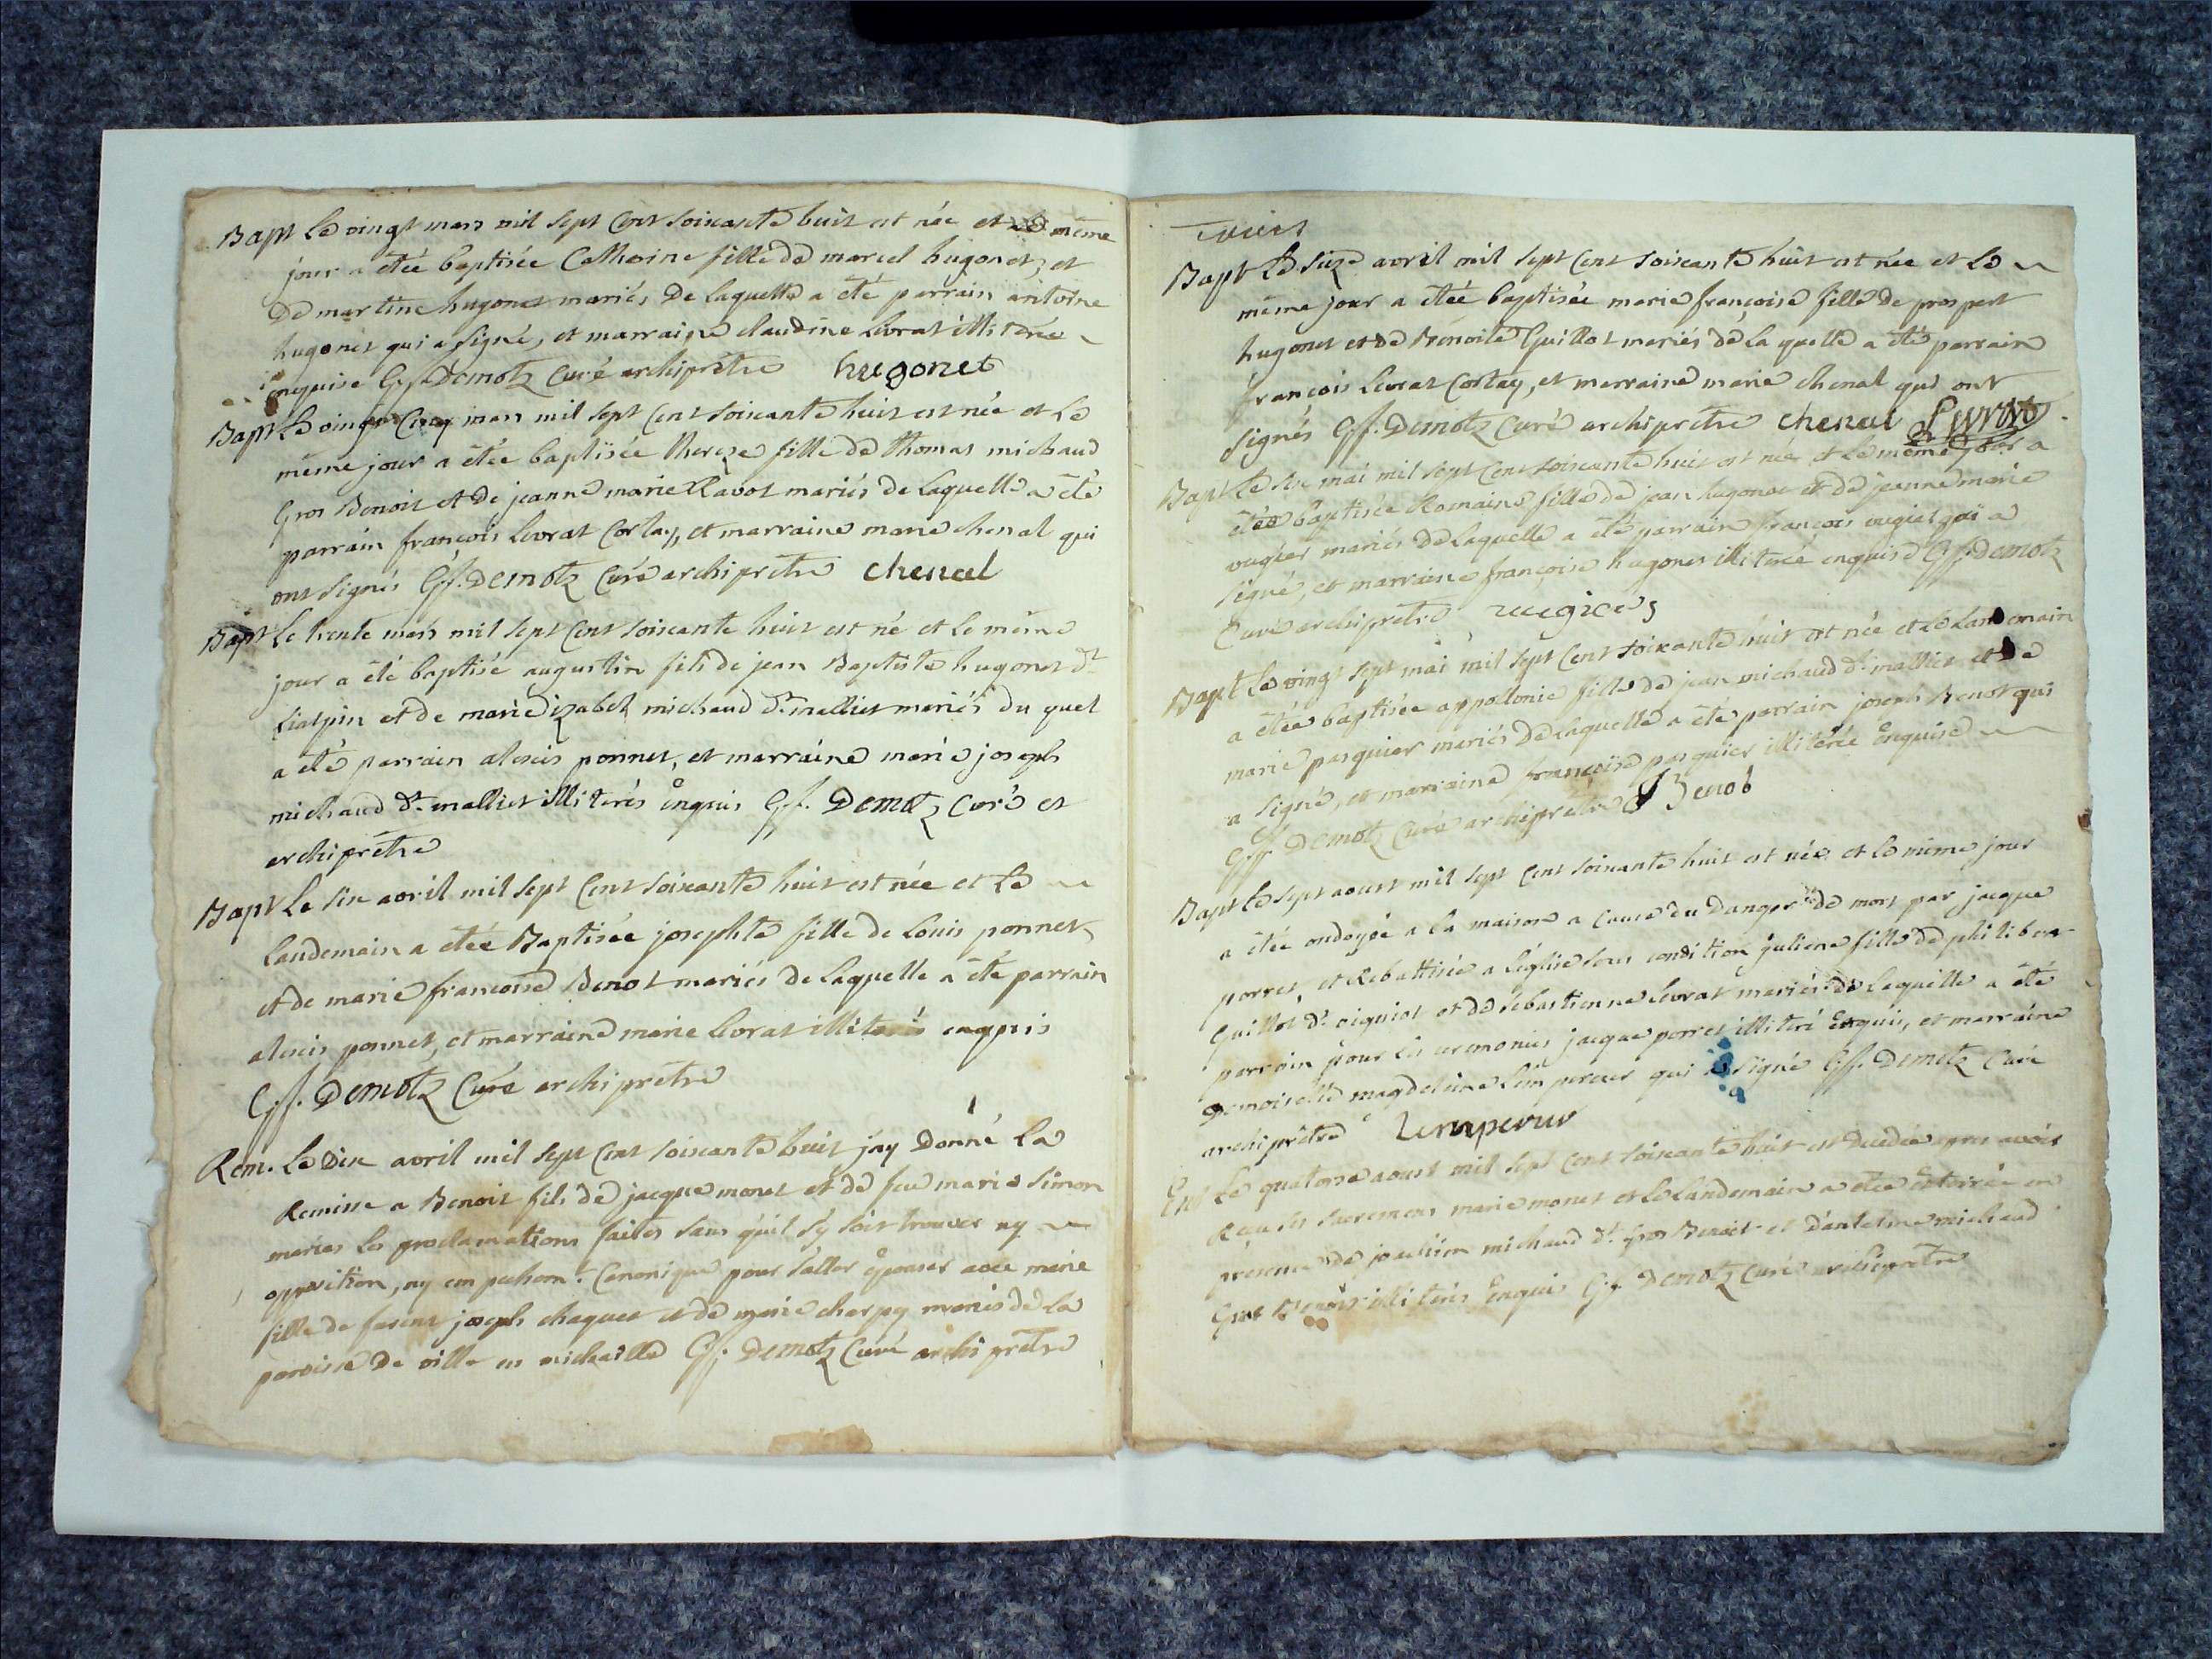 Bapt Le vingt mars mil sept Cent soixante huit est née et le même
jour a étée baptisée Catherine fille de marcel hugonet, et
de martine hugonet mariés de laquelle a été parrain antoine
hugonet qui a signé, et marraine claudine Livrat illiterée
enquise Gf. Demotz Curé archiprêtre hugonet
Bapt Le vingt Cinq mars mil sept Cent soixante huit est née et Le
même jour a étée baptisée thereze fille de thomas michaud
Gros Benoit et de jeanne marie Ravot mariés de Laquelle a été
parrain françois Livrat Cortay, et marraine marie chenal qui
ont signés Gf. Demotz Curé archiprêtre chenal
Bapt Le trente mars mil sept Cent soixante huit est né et Le même
jour a été baptisé augustin fils de jean Baptiste hugonet dt
Liaspin et de marie izabel michaud dt malliet mariés du quel
a été parrain alexis ponnet, et marraine marie joseph
michaud dt malliet illiterés enquis Gf. Demotz Curé et
archiprêtre
Bapt Le six avril mil sept Cent soixante huit est née et Le
landemain a étée Baptisée josephte fille de Louis ponnet
et de marie françoise Benot mariés de Laquelle a été parrain
alexis ponnet, et marraine marie livrat illiterés enquis
Gf. Demotz Curé archiprêtre
Rem. Le Dix avril mil sept Cent soixante huit j'ay Donné La
Remisse a Benoit fils de jacque monet et de feue marie simon
maries les proclamations faites sans qu'il s'y soit trouver ny
opposition, ny empechem.t Canonique pour s'aller épouser avec marie
fille de joseph chaquet et de marie charpy mariés de La
paroisse De ville en michaille Gf. Demotz Curé archiprêtre
Bapt Le sieze avril mil sept Cent soixante huit est née et Le
même jour a étée baptisée marie françoise fille de prospert
hugonet et de Benoite Guillot mariés de La quelle a été parrain
françois Livrat Cortay, et marraine marie chenal qui ont
signés Gf. Demotz Curé archiprêtre chenal Livrat
Bapt Le six mai mil sept Cent soixante huit est née et Le même jour a
étée baptisée Romaine fille de jean hugonet et de jeanne marie
vugier mariés de Laquelle a été parrain françois vugier qui a
signé, et marraine françoise hugonet illiterée enquise Gf. Demotz
Curé archiprêtre vugier
Bapt Le vingt sept mai mil sept Cent soixante huit est née et Le Landemain
a étée baptisée appollonie fille de jean michaud dt malliet et De
marie pasquier mariés De Laquelle a été parrain joseph Benot qui
a signé, et marraine françoise pasquier illiterée enquise
Gf. Demotz Curé archiprêtre J Benot
Bapt Le sept aoust mil sept Cent soixante huit est née et Le même jour
a étée ondoyée a La maison a Cause du Danger de mort par jacque
porret, et Rebattisée a l'église sous condition juliene fille de philibert
Guillot dt viguiot et de sebastienne Livrat mariés de Laquelle a été
parrain pour les ceremonies jacque porret illiteré enquis, et marraine
Demoiselle magdeleine Lemperur qui a signé Gf. Demotz Curé
archiprêtre Lemperur
Ent Le quatorse aoust mil sept Cent soixante huit est Decedée apres avoir
Reçu ses sacremens marie monet et Le Landemain a étée entérée en
presence de joachim michaud dt Gros Benoit et d'antelme michaud
Gros Benoit illiterés enquis Gf. Demotz Curé archiprêtre